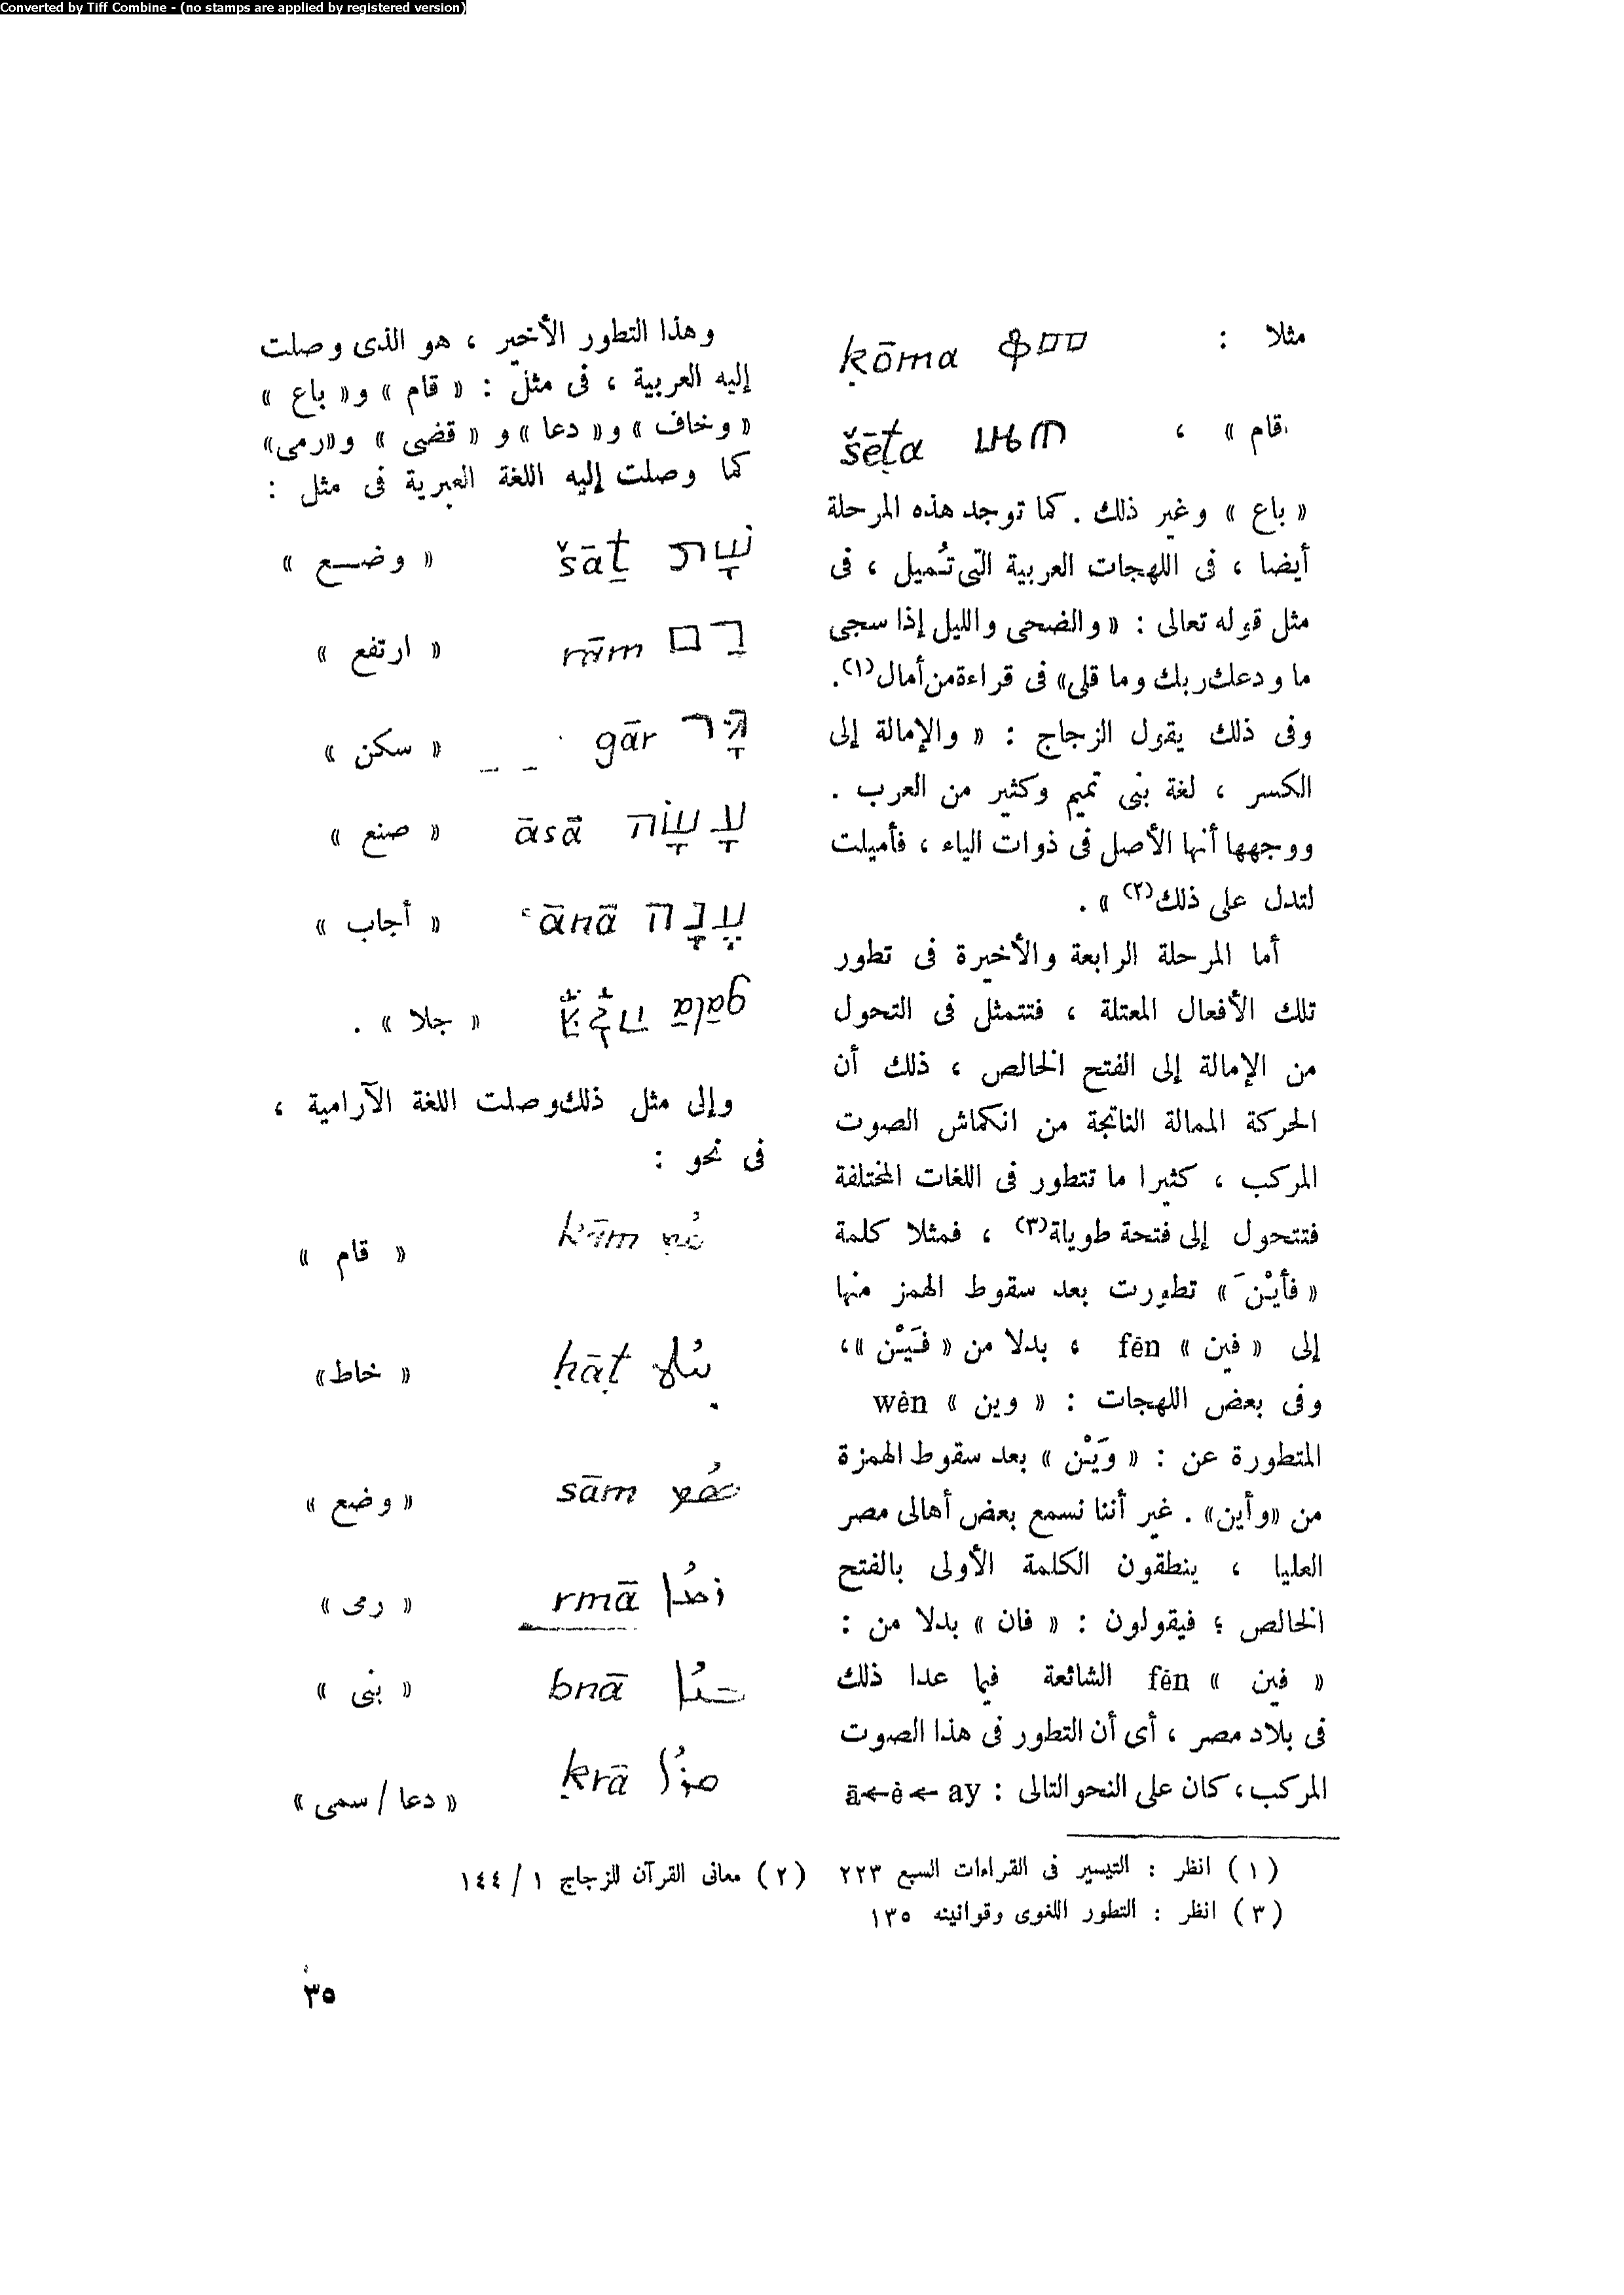 Converted by Tiff Combine - (no stamps are applied by registered version)
مثلا : ḳōma ቆመ
قام » ، šēṭa ሤጠ
« باع » وغير ذلك . كما توجد هذه المرحلة
أيضا ، فى اللهجات العربية التى تُميل ، فى
مثل قوله تعالى : « والضحى والليل إذا سجى
ما ودعك ربك وما قلى» فى قراءة من أمال(١).
وفى ذلك يقول الزجاج : « والإمالة إلى
الكسر ، لغة بنى تميم وكثير من العرب .
ووجهها أنها الأصل فى ذوات الياء ، فأميلت
لتدل على ذلك(٢) » .
أما المرحلة الرابعة والأخيرة فى تطور
تلك الأفعال المعتلة ، فتتمثل فى التحول
من الإمالة إلى الفتح الخالص ، ذلك أن
الحركة الممالة الناتجة من انكماش الصوت
المركب ، كثيرا ما تتطور فى اللغات المختلفة
فتتحول إلى فتحة طويلة(٣) ، فمثلا كلمة
« فأيْنَ » تطورت بعد سقوط الهمز منها
إلى « فين » fên ، بدلا من « فَيْن »،
وفى بعض اللهجات : « وين » wên
المتطورة عن : « وَيْن » بعد سقوط الهمزة
من «وأين» . غير أننا نسمع بعض أهالى مصر
العليا ، ينطقون الكلمة الأولى بالفتح
الخالص ؛ فيقولون : « فان » بدلا من :
« فين » fên الشائعة فيما عدا ذلك
فى بلاد مصر ، أى أن التطور فى هذا الصوت
المركب، كان على النحو التالى : ay → ê → ā
وهذا التطور الأخير ، هو الذى وصلت
إليه العربية ، فى مثل : « قام » و« باع »
« وخاف » و« دعا » و « قضى » و«رمى»
كما وصلت إليه اللغة العبرية فى مثل :
שָׁת šāṯ « وضع »
רָם rām « ارتفع »
גָּר gār « سكن »
עָשָׂה āsā « صنع »
עָנָה ʿānā « أجاب »
galā « جلا » .
وإلى مثل ذلك وصلت اللغة الآرامية ،
فى نحو :
ḳām « قام »
ḥāṭ « خاط»
sām « وضع »
rmā « رمى »
bnā « بنى »
ḳrā « دعا / سمى »
(١) انظر : التيسير فى القراءات السبع ٢٢٣ (٢) معانى القرآن للزجاج ١ / ١٤٤
(٣) انظر : التطور اللغوى وقوانينه ١٣٥
٣٥